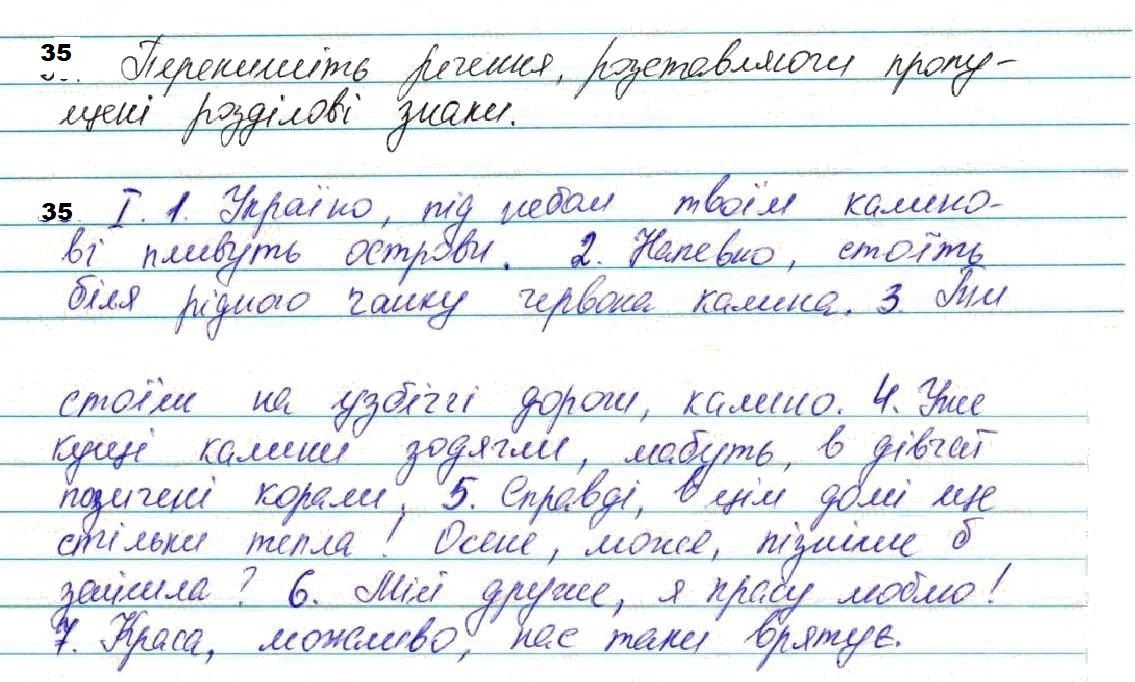 35
Перепишіть речення, розставляючи пропу-
щені розділові знаки.
35 І. 1. Україно, під небом твоїм калино-
ві пливуть острови. 2. Напевно, стоїть
біля рідного ганку червона калина. 3. Ти
стоїш на узбіччі дороги, калино. 4. Уже
кущі калини зодягли, мабуть, в дівчат
позичені корали. 5. Справді, в цім домі ще
стільки тепла! Осене, може, пізніше б
зайшла? 6. Мій друже, я працю люблю!
7. Краса, можливо, нас таки врятує.